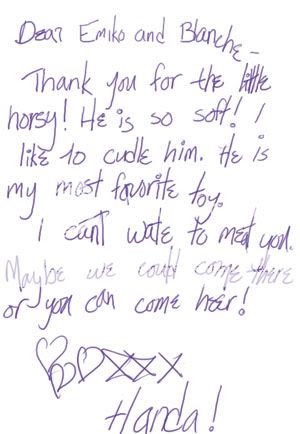 Dear Emiko and Blanche –
Thank you for the little
horsy! He is so soft! I
like to cudle him. He is
my most favorite toy.
I can't wate to meet you.
Maybe we could come there
or you can come heir!
xxx
Handa!